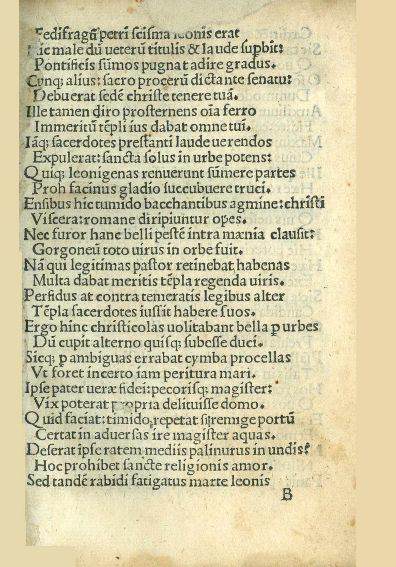 Fedifragū petri scisma leonis erat
Hic male dū veterū titulis & laude supbit:
Pontificis sūmos pugnat adire gradus.
Cunq; alius: sacro procerū dictante senatu:
Debuerat sedē christe tenere tuā.
Ille tamen diro prosternens oīa ferro
Immeritū tēpli ius dabat omne tuī.
Iāq; sacerdotes prestanti laude verendos
Expulerat: sancta solus in urbe potens:
Quiq; leonigenas renuerunt sūmere partes
Proh facinus gladio succubuere truci.
Ensibus hic tumido bacchantibus agmine: christi
Viscera: romane diripiuntur opes.
Nec furor hane belli pestē intra mœnia clausit:
Gorgoneū toto uirus in orbe fuit.
Nā qui legitimas pastor retinebat habenas
Multa dabat meritis tēpla regenda uiris.
Perfidus at contra temeratis legibus alter
Tēpla sacerdotes iussit habere suos.
Ergo hinc christicolas uolitabant bella p urbes
Dū cupit alterno quisq; subesse duci.
Sicq; p ambiguas errabat cymba procellas
Vt foret incerto iam peritura mari.
Ipse pater ueræ fidei: pecorisq; magister:
Vix poterat propria delituisse domo.
Quid faciat: timido, repetat si remige portū
Certat in aduersas ire magister aquas.
Deserat ipse ratem mediis palinurus in undis?
Hoc prohibet sancte religionis amor.
Sed tandē rabidi fatigatus marte leonis
B